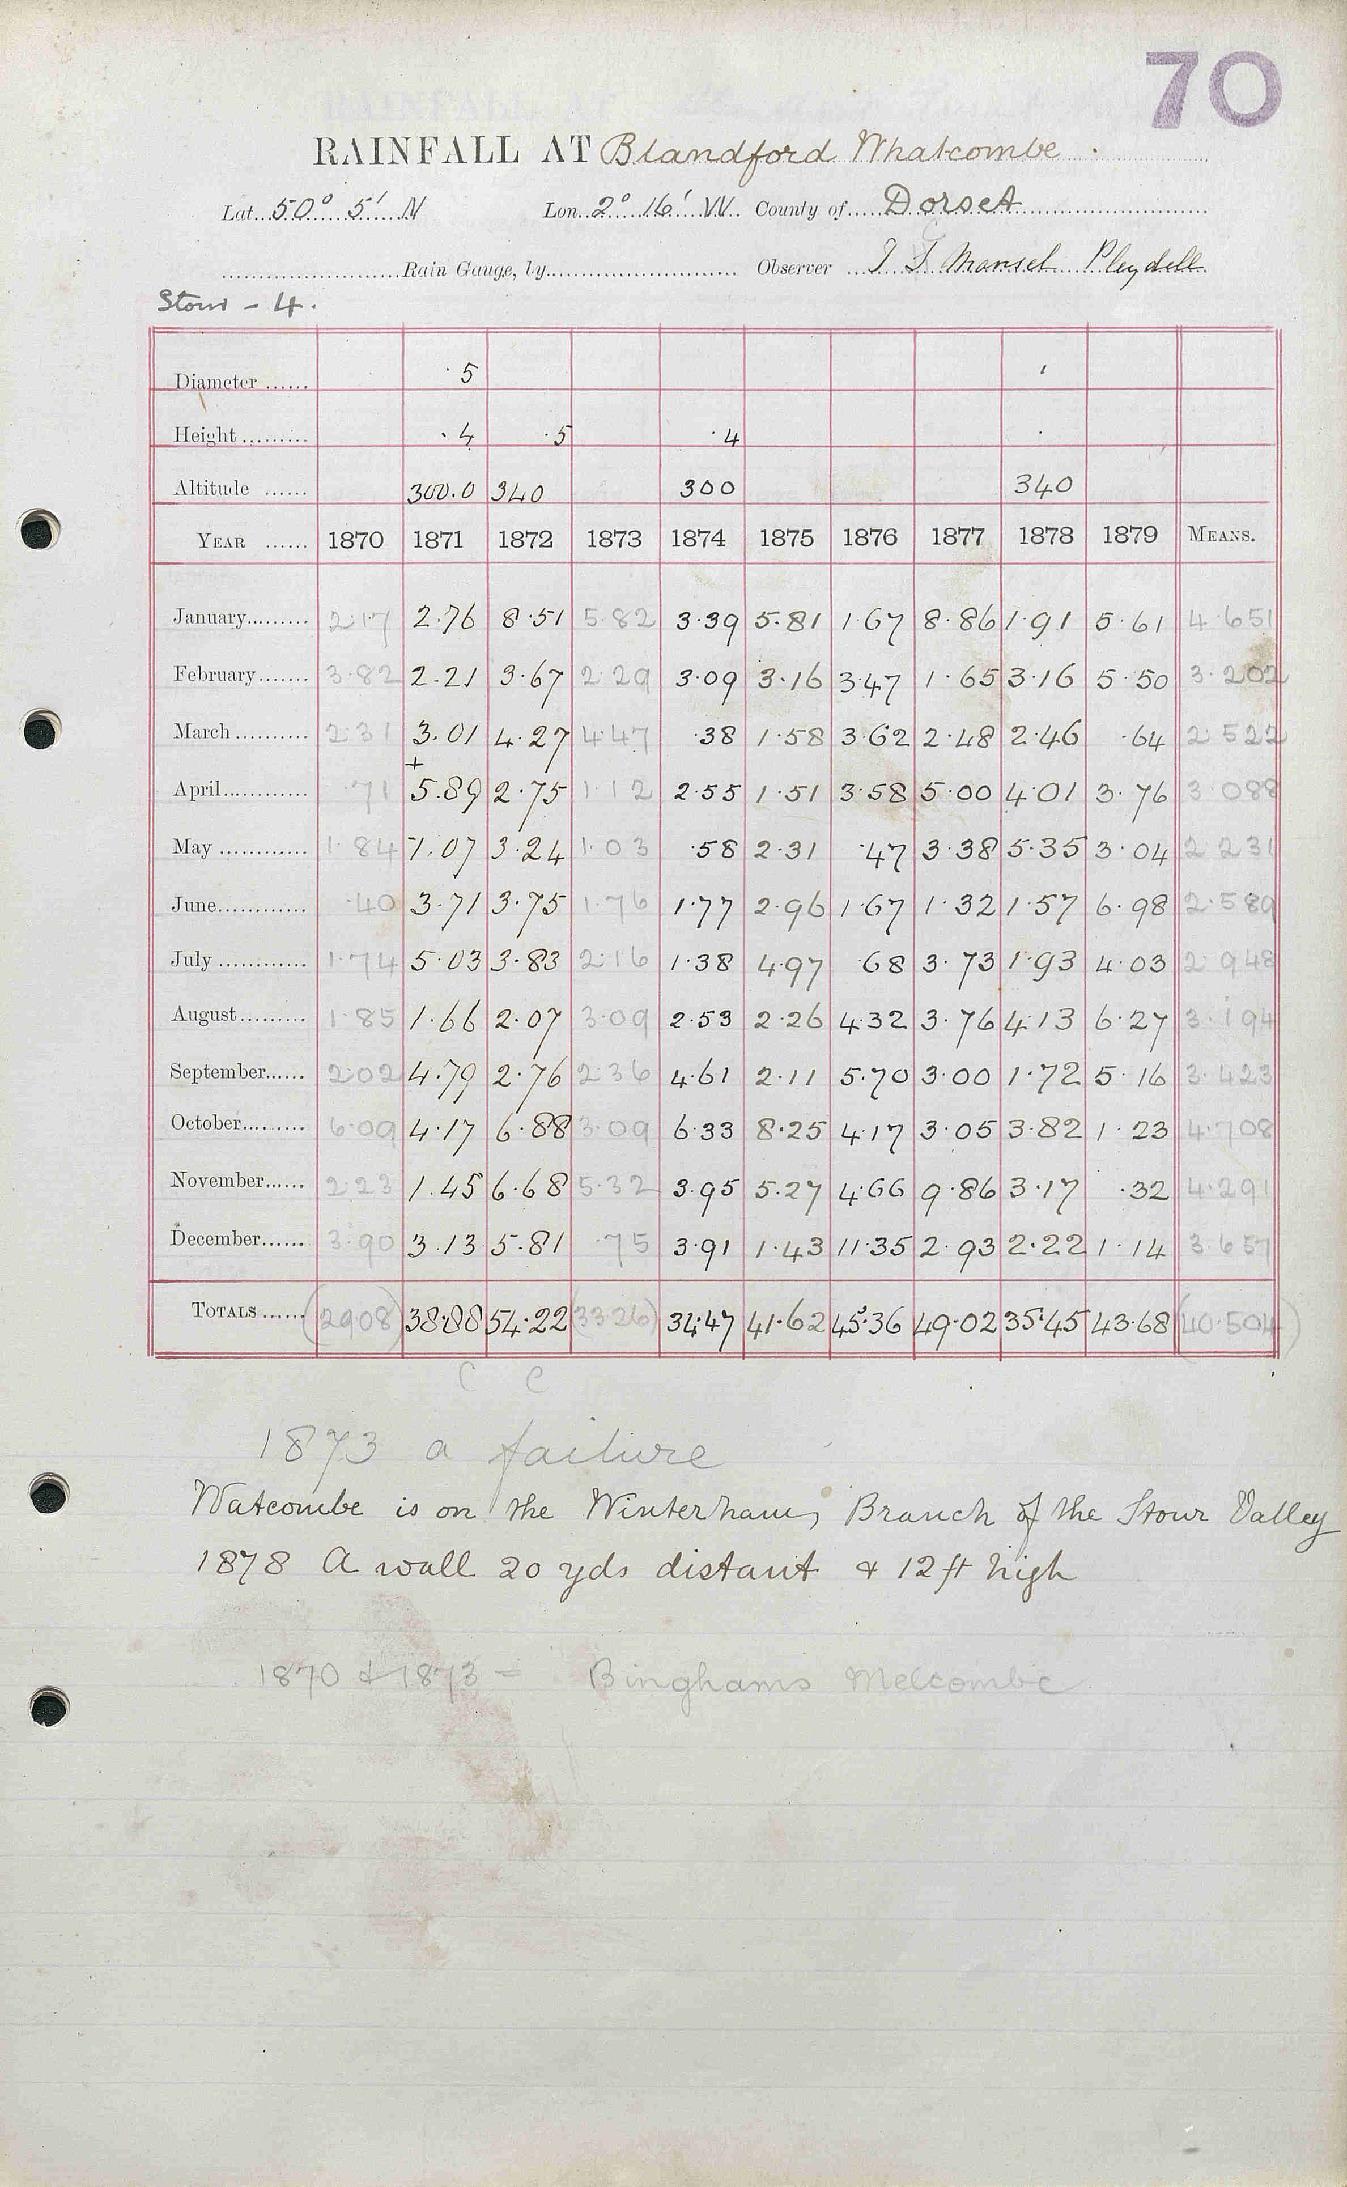 70
RAINFALL AT Blandford Whatcombe.
Lat. 50° 5' N Lon. 2° 16' W. County of Dorset
Rain Gauge, by Observer J. Mansel Pleydell
Stour - 4.
Diameter 5
Height .4 .5 .4
Altitude 300.0 340 300 340
YEAR 1870 1871 1872 1873 1874 1875 1876 1877 1878 1879 MEANS.
January 2.17 2.76 8.51 5.82 3.39 5.81 1.67 8.86 1.91 5.61 4.651
February 3.82 2.21 3.67 2.29 3.09 3.16 3.47 1.65 3.16 5.50 3.202
March 2.31 3.01 4.27 4.47 .38 1.58 3.62 2.48 2.46 .64 2.522
+
April .71 5.89 2.75 1.12 2.55 1.51 3.58 5.00 4.01 3.76 3.088
May 1.84 1.07 3.24 1.03 .58 2.31 .47 3.38 5.35 3.04 2.231
June .40 3.71 3.75 1.76 1.77 2.96 1.67 1.32 1.57 6.98 2.589
July 1.74 5.03 3.83 2.16 1.38 4.97 .68 3.73 1.93 4.03 2.948
August 1.85 1.66 2.07 3.09 2.53 2.26 4.32 3.76 4.13 6.27 3.194
September 2.02 4.79 2.76 2.36 4.61 2.11 5.70 3.00 1.72 5.16 3.423
October 6.09 4.17 6.88 3.09 6.33 8.25 4.17 3.05 3.82 1.23 4.708
November 2.23 1.45 6.68 5.32 3.95 5.27 4.66 9.86 3.17 .32 4.291
December 3.90 3.13 5.81 .75 3.91 1.43 11.35 2.93 2.22 1.14 3.657
TOTALS (29.08) 38.88 54.22 (33.26) 34.47 41.62 45.36 49.02 35.45 43.68 (40.504)
C C
1873 a failure
Watcombe is on the Branch of the Stour Valley
1878 A wall 20 yds distant & 12 ft high
1870 & 1873 = Binghams Melcombe